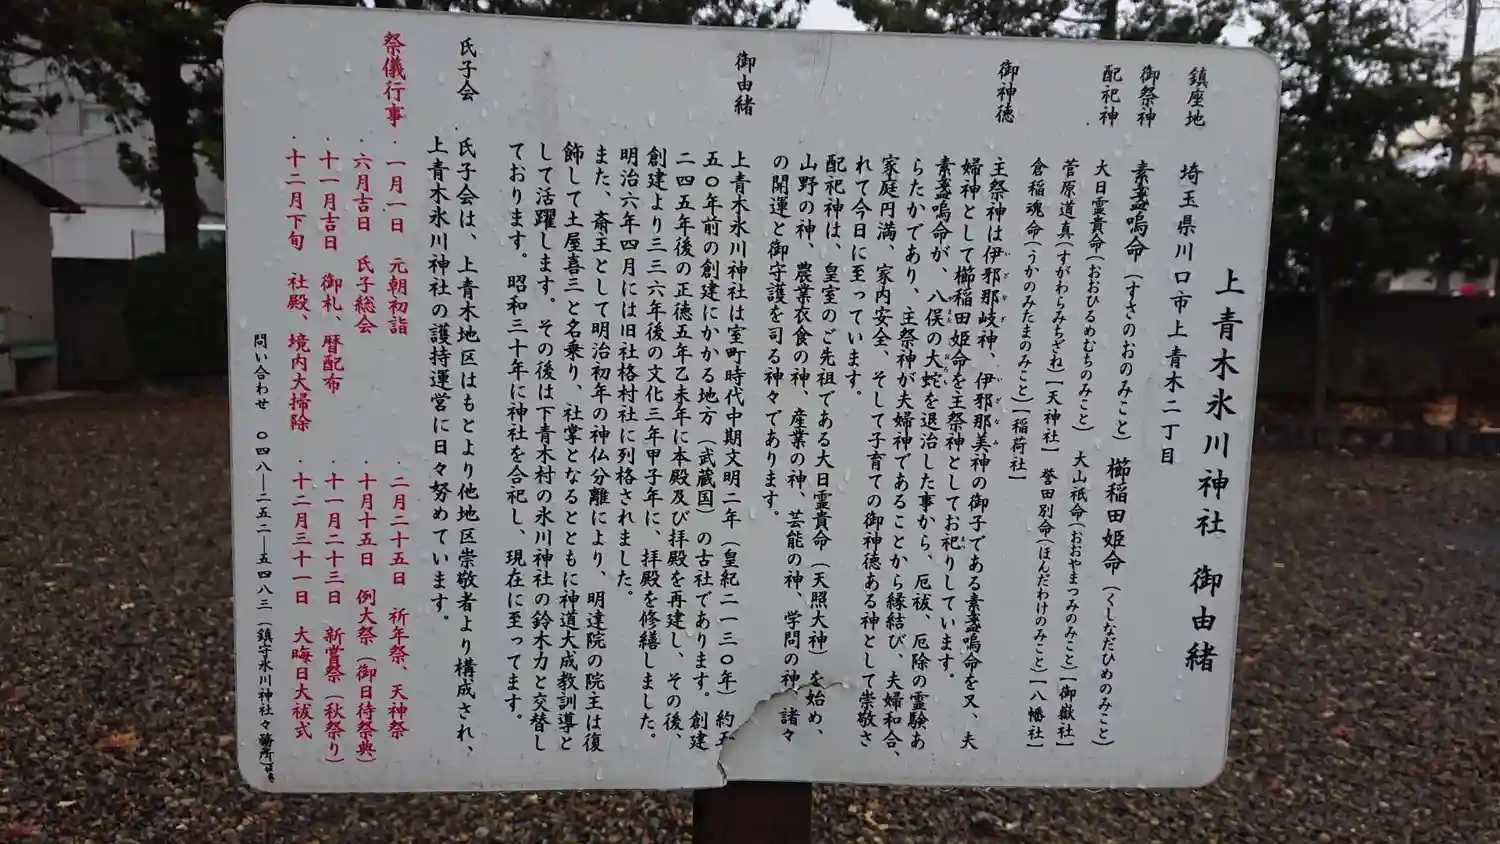 上青木氷川神社 御由緒
鎮座地 埼玉県川口市上青木二丁目
御祭神 素盞嗚命(すさのおのみこと) 櫛稲田姫命(くしなだひめのみこと)
配祀神 大日霊貴命(おおひるめむちのみこと) 大山祇命(おおやまつみのみこと)【御嶽社】
菅原道真(すがわらみちざね)【天神社】 誉田別命(ほんだわけのみこと)【八幡社】
倉稲魂命(うかのみたまのみこと)【稲荷社】
御神徳 主祭神は伊邪那岐神、伊邪那美神の御子である素盞嗚命を又、夫
婦神として櫛稲田姫命を主祭神としてお祀りしています。
素盞嗚命が、八俣の大蛇を退治した事から、厄祓、厄除の霊験あ
らたかであり、主祭神が夫婦神であることから縁結び、夫婦和合、
家庭円満、家内安全、そして子育ての御神徳ある神として崇敬さ
れて今日に至っています。
配祀神は、皇室のご先祖である大日霊貴命(天照大神)を始め、
山野の神、農業衣食の神、産業の神、芸能の神、学問の神、諸々
の開運と御守護を司る神々であります。
御由緒 上青木氷川神社は室町時代中期文明二年(皇紀二一三〇年)約五
五〇年前の創建にかかる地方(武蔵国)の古社であります。創建
二四五年後の正徳五年乙未年に本殿及び拝殿を再建し、その後、
創建より三三六年後の文化三年甲子年に、拝殿を修繕しました。
明治六年四月には旧社格村社に列格されました。
また、斎王として明治初年の神仏分離により、明達院の院王は復
飾して土屋喜三と名乗り、社掌となるとともに神道大成教訓導と
して活躍します。その後は下青木村の氷川神社の鈴木力と交替し
ております。昭和三十年に神社を合祀し、現在に至ってます。
氏子会 氏子会は、上青木地区はもとより他地区崇敬者より構成され、
上青木氷川神社の護持運営に日々努めています。
祭儀行事 ・一月一日 元朝初詣 ・二月二十五日 祈年祭、天神祭
・六月吉日 氏子総会 ・十月十五日 例大祭(御日待祭典)
・十一月吉日 御札、暦配布 ・十一月二十三日 新嘗祭(秋祭り)
・十二月下旬 社殿、境内大掃除 ・十二月三十一日 大晦日大祓式
問い合わせ 〇四八―二五二―五四八三(鎮守氷川神社々務所